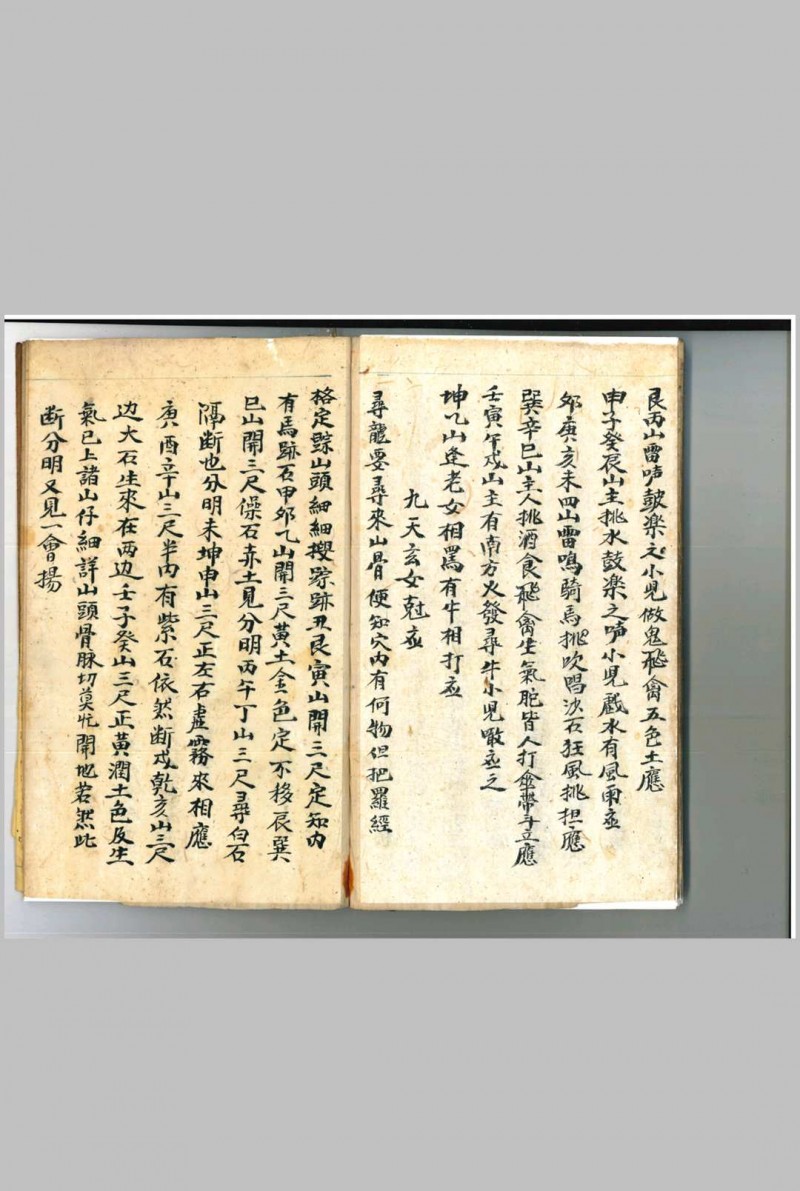 艮丙山雷声鼓楽之小児做鬼飛禽五色土應
申子癸辰山主挑水鼓楽之声小児戯水有風雨应
夘庚亥未四山雷鳴騎馬挑吹唱沙石狂風挑担應
巽辛巳山主人挑酒食飛禽生氣肥皆人打傘帶斗立應
壬寅午戌山主有南方火發尋牛小児噉应之
坤乙山逢老女相罵有牛相打应
九天玄女尅应
尋龍要尋來山骨便知穴內有何物但把羅經
格定踪山頭細細搜踪跡丑艮寅山開三尺定知內
有馬跡石甲夘乙山開三尺黃土金色定不移辰巽
巳山開三尺㑋石赤土見分明丙午丁山三尺尋白石
隔断也分明未坤申山三尺正左右虛霧來相應
庚酉辛山三尺半內有紫石依然断戌乾亥山三尺
边大石生來在两边壬子癸山三尺正黃潤土色及生
氣已上諸山仔細詳山頭骨脉切莫忙開地若然此
断分明又見一會揚